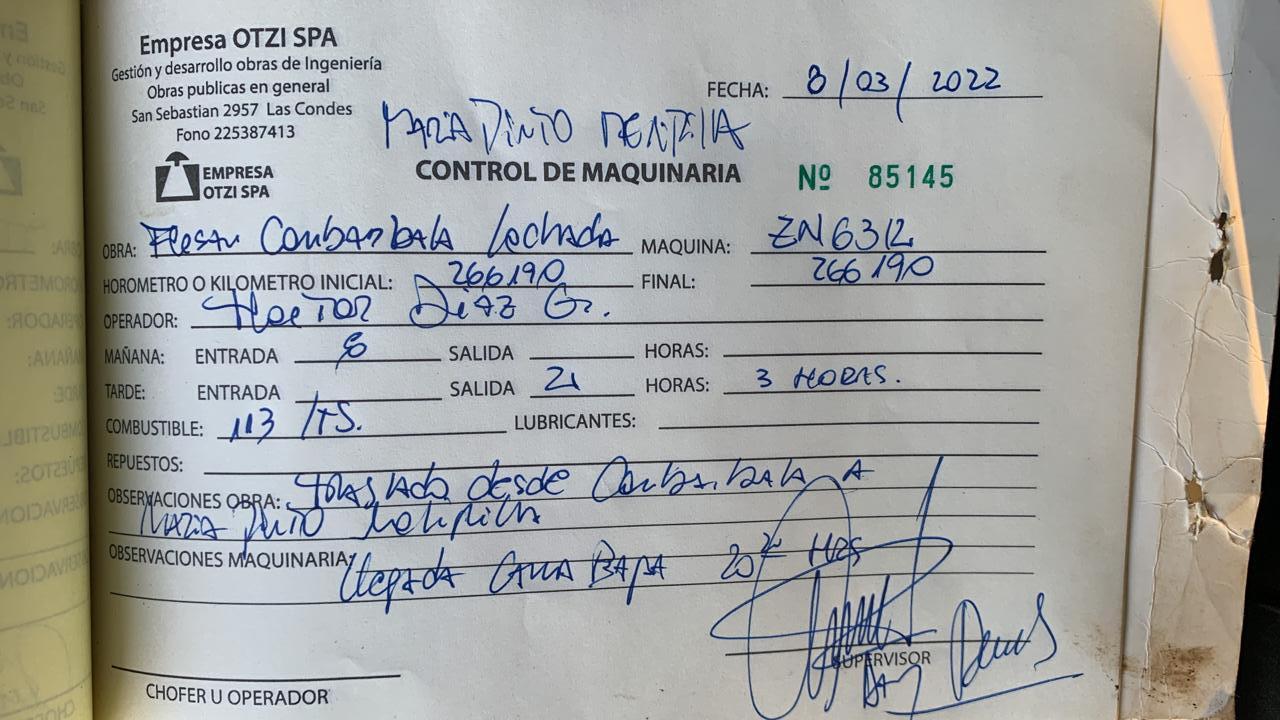 Empresa OTZI SPA
Gestión y desarrollo obras de Ingeniería
Obras publicas en general
San Sebastian 2957 Las Condes
Fono 225387413
FECHA: 8/03/2022
MARIA PINTO
EMPRESA OTZI SPA
CONTROL DE MAQUINARIA Nº 85145
OBRA: Flesan Combarbala Lechada MAQUINA: ZN6312
HOROMETRO O KILOMETRO INICIAL: 266190 FINAL: 266190
OPERADOR: Hector Diaz G.
MAÑANA: ENTRADA 8 SALIDA HORAS:
TARDE: ENTRADA SALIDA 21 HORAS: 3 HORAS.
COMBUSTIBLE: 113 LTS. LUBRICANTES:
REPUESTOS:
OBSERVACIONES OBRA: traslado desde Combarbala A
MARIA PINTO Melipilla
OBSERVACIONES MAQUINARIA: llegada 20 HRS
SUPERVISOR
CHOFER U OPERADOR